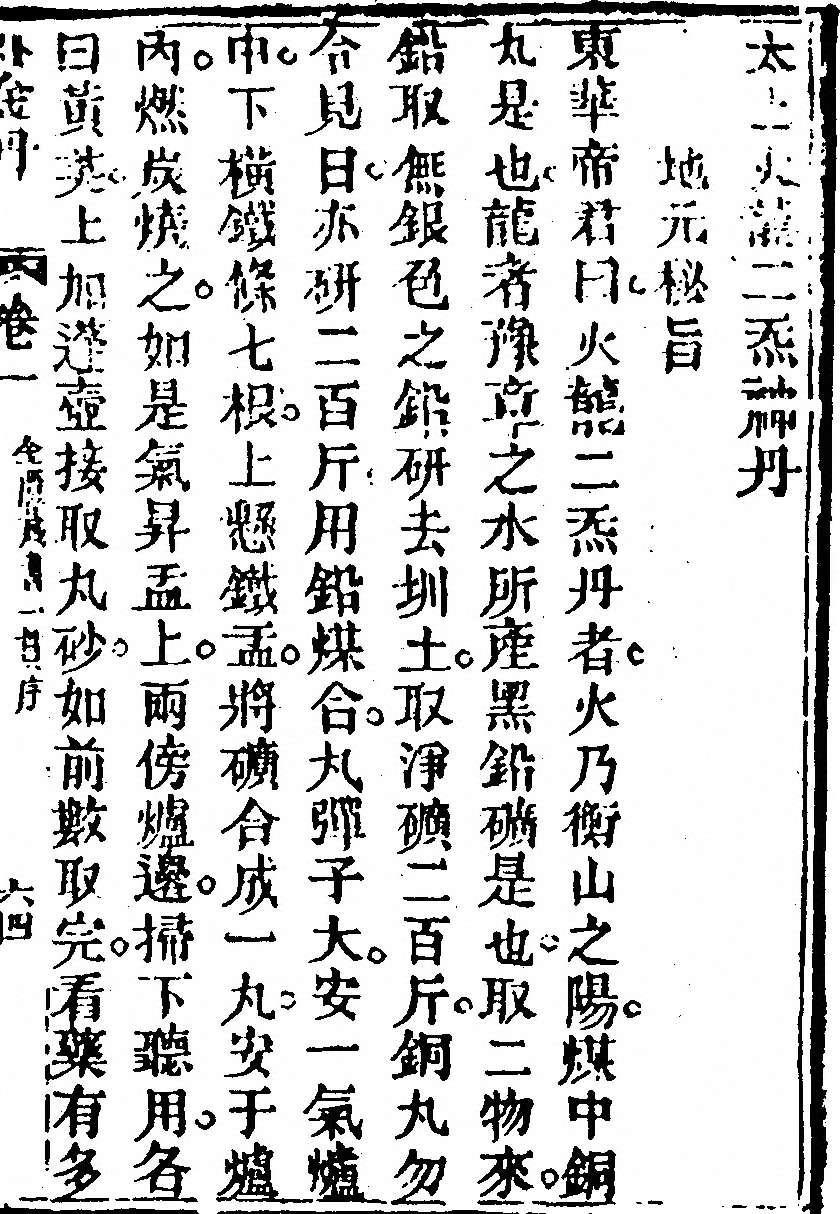 太上火龍二炁神丹
地元秘旨
東華帝君曰火龍二炁丹者火乃衡山之陽煤中銅
丸是也龍者豫章之水所產黑鉛礦是也取二物來
鉛取無銀色之鉛研去圳土取淨礦二百斤銅丸勿
令見日亦研二百斤用鉛煤合丸彈子大安一氣爐
中下橫鐵條七根上懸鐵盂將礦合成一丸安于爐
內燃炭燒之如是氣昇盂上兩傍爐邊掃下聽用名
曰黃英上加蓬壺接取丸砂如前數取完看藥有多
卷一
六四